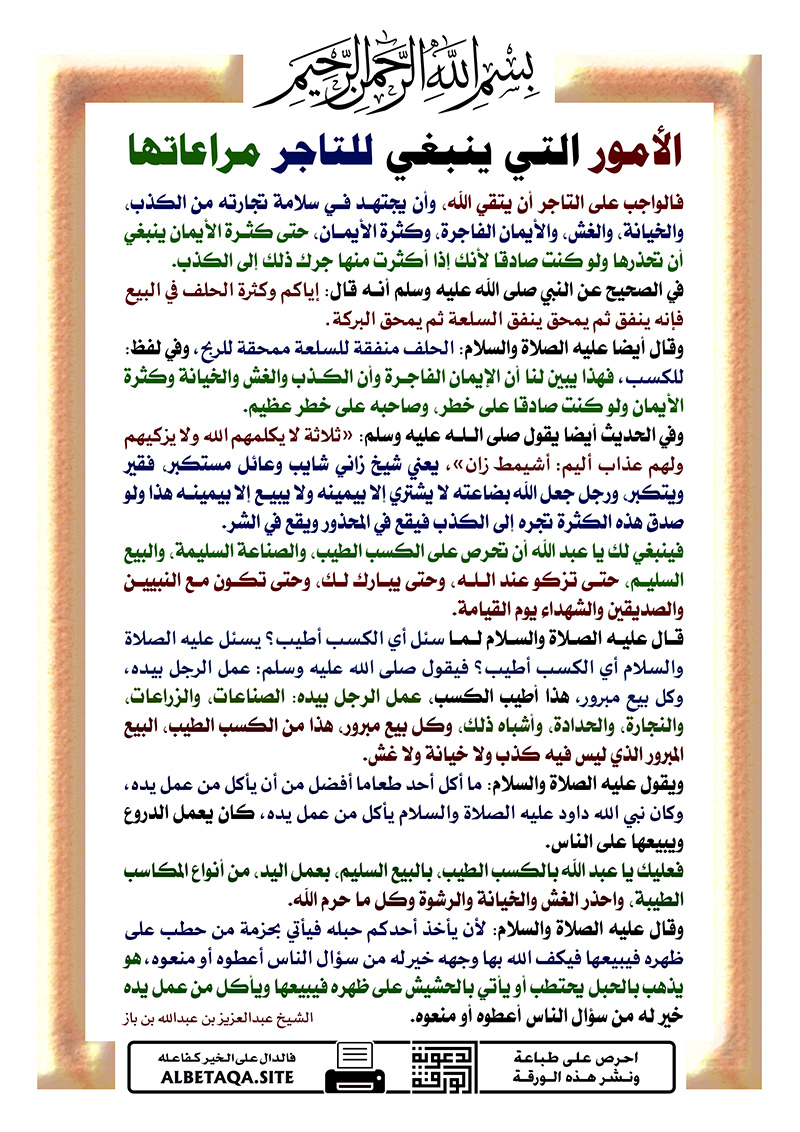 بِسْمِ اللَّهِ الرَّحْمَنِ الرَّحِيمِ
الأمور التي ينبغي للتاجر مراعاتها
فالواجب على التاجر أن يتقي الله، وأن يجتهد في سلامة تجارته من الكذب،
والخيانة، والغش، والأيمان الفاجرة، وكثرة الأيمان، حتى كثرة الأيمان ينبغي
أن تحذرها ولو كنت صادقا لأنك إذا أكثرت منها جرك ذلك إلى الكذب.
في الصحيح عن النبي صلى الله عليه وسلم أنه قال: إياكم وكثرة الحلف في البيع
فإنه ينفق ثم يمحق ينفق السلعة ثم يمحق البركة.
وقال أيضا عليه الصلاة والسلام: الحلف منفقة للسلعة ممحقة للربح، وفي لفظ:
للكسب، فهذا يبين لنا أن الإيمان الفاجرة وأن الكذب والغش والخيانة وكثرة
الأيمان ولو كنت صادقا على خطر، وصاحبه على خطر عظيم.
وفي الحديث أيضا يقول صلى الله عليه وسلم: «ثلاثة لا يكلمهم الله ولا يزكيهم
ولهم عذاب أليم: أشيمط زان»، يعني شيخ زاني شايب وعائل مستكبر، فقير
ويتكبر، ورجل جعل الله بضاعته لا يشتري إلا بيمينه ولا يبيع إلا بيمينه هذا ولو
صدق هذه الكثرة تجره إلى الكذب فيقع في المحذور ويقع في الشر.
فينبغي لك يا عبد الله أن تحرص على الكسب الطيب، والصناعة السليمة، والبيع
السليم، حتى تزكو عند الله، وحتى يبارك لك، وحتى تكون مع النبيين
والصديقين والشهداء يوم القيامة.
قال عليه الصلاة والسلام لما سئل أي الكسب أطيب؟ يسئل عليه الصلاة
والسلام أي الكسب أطيب؟ فيقول صلى الله عليه وسلم: عمل الرجل بيده،
وكل بيع مبرور، هذا أطيب الكسب، عمل الرجل بيده: الصناعات، والزراعات،
والنجارة، والحدادة، وأشباه ذلك، وكل بيع مبرور، هذا من الكسب الطيب، البيع
المبرور الذي ليس فيه كذب ولا خيانة ولا غش.
ويقول عليه الصلاة والسلام: ما أكل أحد طعاما أفضل من أن يأكل من عمل يده،
وكان نبي الله داود عليه الصلاة والسلام يأكل من عمل يده، كان يعمل الدروع
ويبيعها على الناس.
فعليك يا عبد الله بالكسب الطيب، بالبيع السليم، بعمل اليد، من أنواع المكاسب
الطيبة، واحذر الغش والخيانة والرشوة وكل ما حرم الله.
وقال عليه الصلاة والسلام: لأن يأخذ أحدكم حبله فيأتي بحزمة من حطب على
ظهره فيبيعها فيكف الله بها وجهه خير له من سؤال الناس أعطوه أو منعوه، هو
يذهب بالحبل يحتطب أو يأتي بالحشيش على ظهره فيبيعها ويأكل من عمل يده
خير له من سؤال الناس أعطوه أو منعوه. الشيخ عبدالعزيز بن عبدالله بن باز
احرص على طباعة
ونشر هذه الورقة
الورقة الدعوية
فالدال على الخير كفاعله
ALBETAQA.SITE